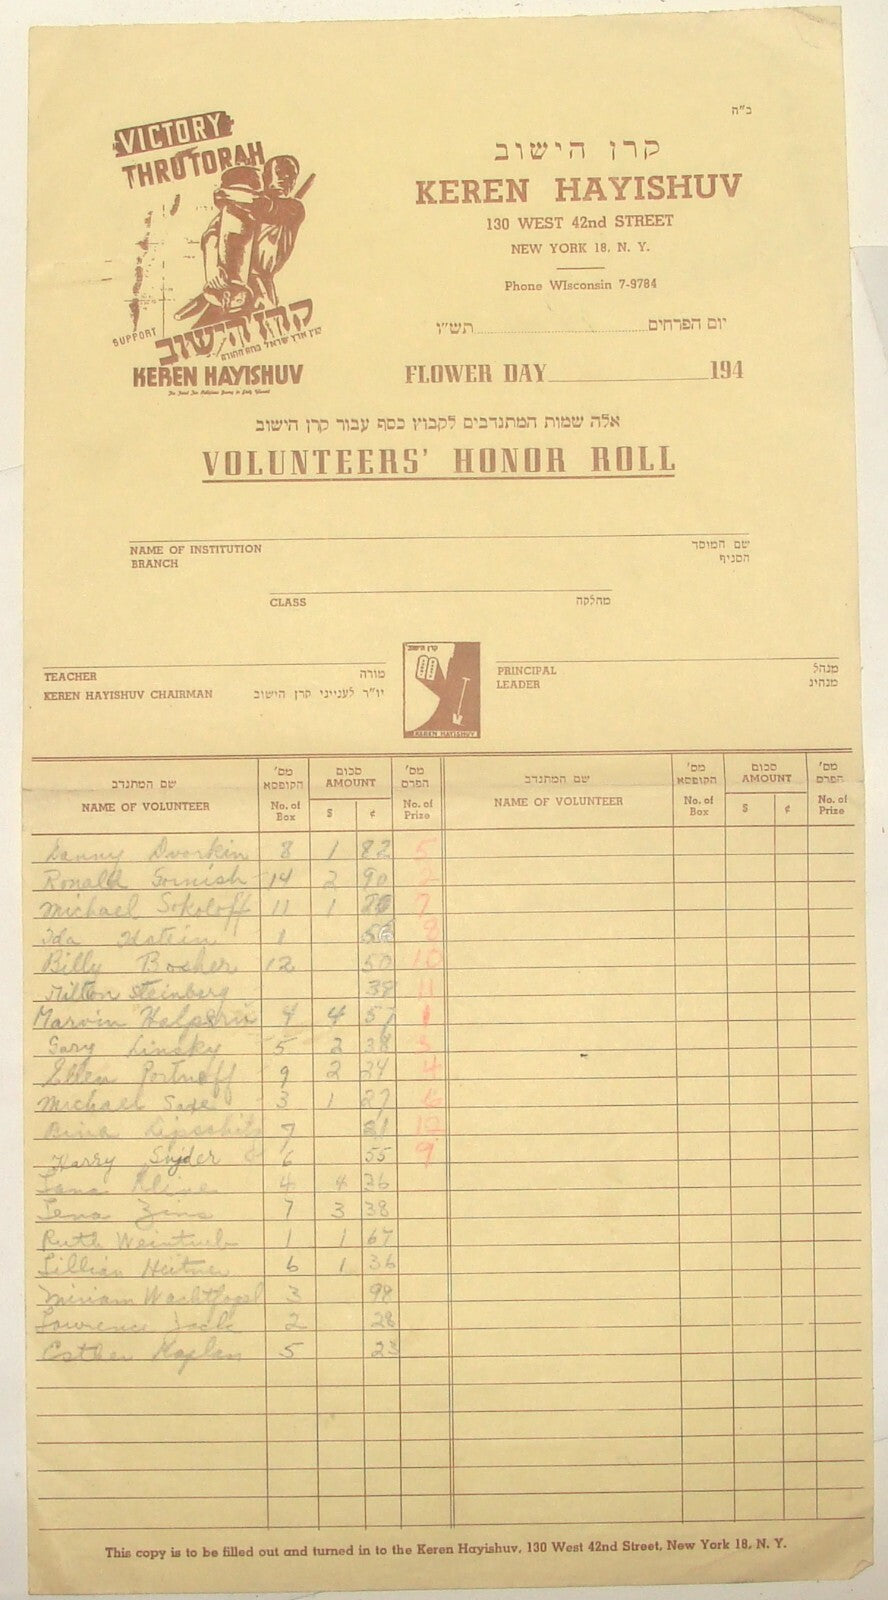 ב"ה
VICTORY
THRU TORAH
SUPPORT
קרן הישוב
KEREN HAYISHUV
קרן הישוב
KEREN HAYISHUV
130 WEST 42nd STREET
NEW YORK 18, N. Y.
Phone WIsconsin 7-9784
יום הפרחים תש"ו
FLOWER DAY 194
אלה שמות המתנדבים לקבוץ כסף עבור קרן הישוב
VOLUNTEERS' HONOR ROLL
NAME OF INSTITUTION שם המוסד
BRANCH הסניף
CLASS מחלקה
TEACHER מורה
KEREN HAYISHUV CHAIRMAN יו"ר לעניני קרן הישוב
קרן הישוב
KEREN HAYISHUV
PRINCIPAL מנהל
LEADER מנהיג
שם המתנדב מס' הקופסא סכום מס' הפרס שם המתנדב מס' הקופסא סכום מס' הפרס
NAME OF VOLUNTEER No. of Box AMOUNT $ ¢ No. of Prize NAME OF VOLUNTEER No. of Box AMOUNT $ ¢ No. of Prize
Danny Dvorkin 8 1 82 5
Ronald 14 2 90 2
Michael Sokoloff 11 1 7
Ida 1 8
Billy 12 50 10
Milton Steinberg 38 11
Marvin Halpern 4 4 57 1
Gary Linsky 5 2 38 3
Ellen Portnoff 9 2 24 4
Michael 3 1 27 6
Bina 7 21 12
Harry Snyder 6 55 9
Kline 4 4 36
Lena Zins 7 3 38
Ruth Weintraub 1 1 67
Lillian 6 1 36
Miriam Wachtfogel 3 98
Lawrence 2 28
Esther Kaplan 5 23
This copy is to be filled out and turned in to the Keren Hayishuv, 130 West 42nd Street, New York 18, N. Y.